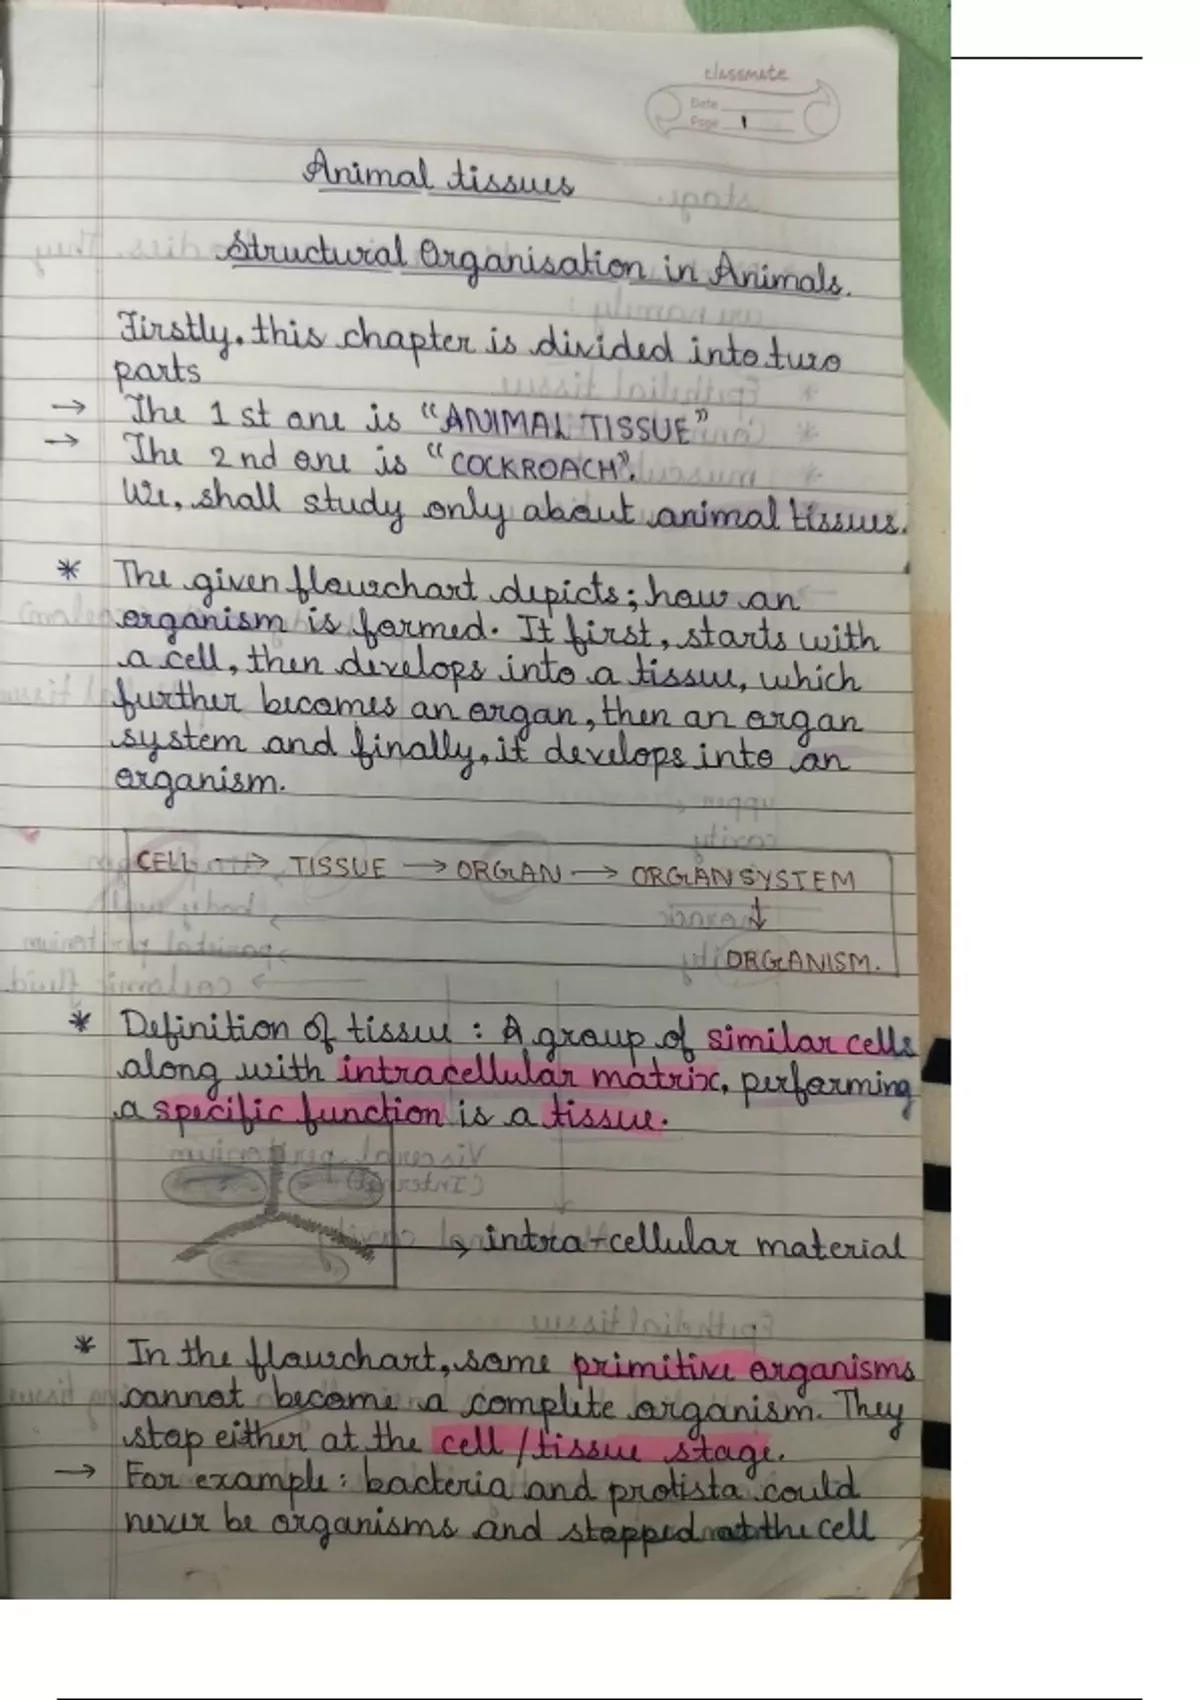 classmate
Date
Page 1
Animal tissues
Structural Organisation in Animals.
Firstly, this chapter is divided into two
parts
→ The 1st one is "ANIMAL TISSUE"
→ The 2nd one is "COCKROACH".
We, shall study only about animal tissues.
* The given flowchart depicts; how an
organism is formed. It first, starts with
a cell, then develops into a tissue, which
further becomes an organ, then an organ
system and finally, it develops into an
organism.
CELL → TISSUE → ORGAN → ORGAN SYSTEM
↓
ORGANISM.
* Definition of tissue : A group of similar cells
along with intracellular matrix, performing
a specific function is a tissue.
→ intra-cellular material
* In the flowchart, some primitive organisms
cannot become a complete organism. They
stop either at the cell / tissue stage.
→ For example : bacteria and protista could
never be organisms and stopped at the cell